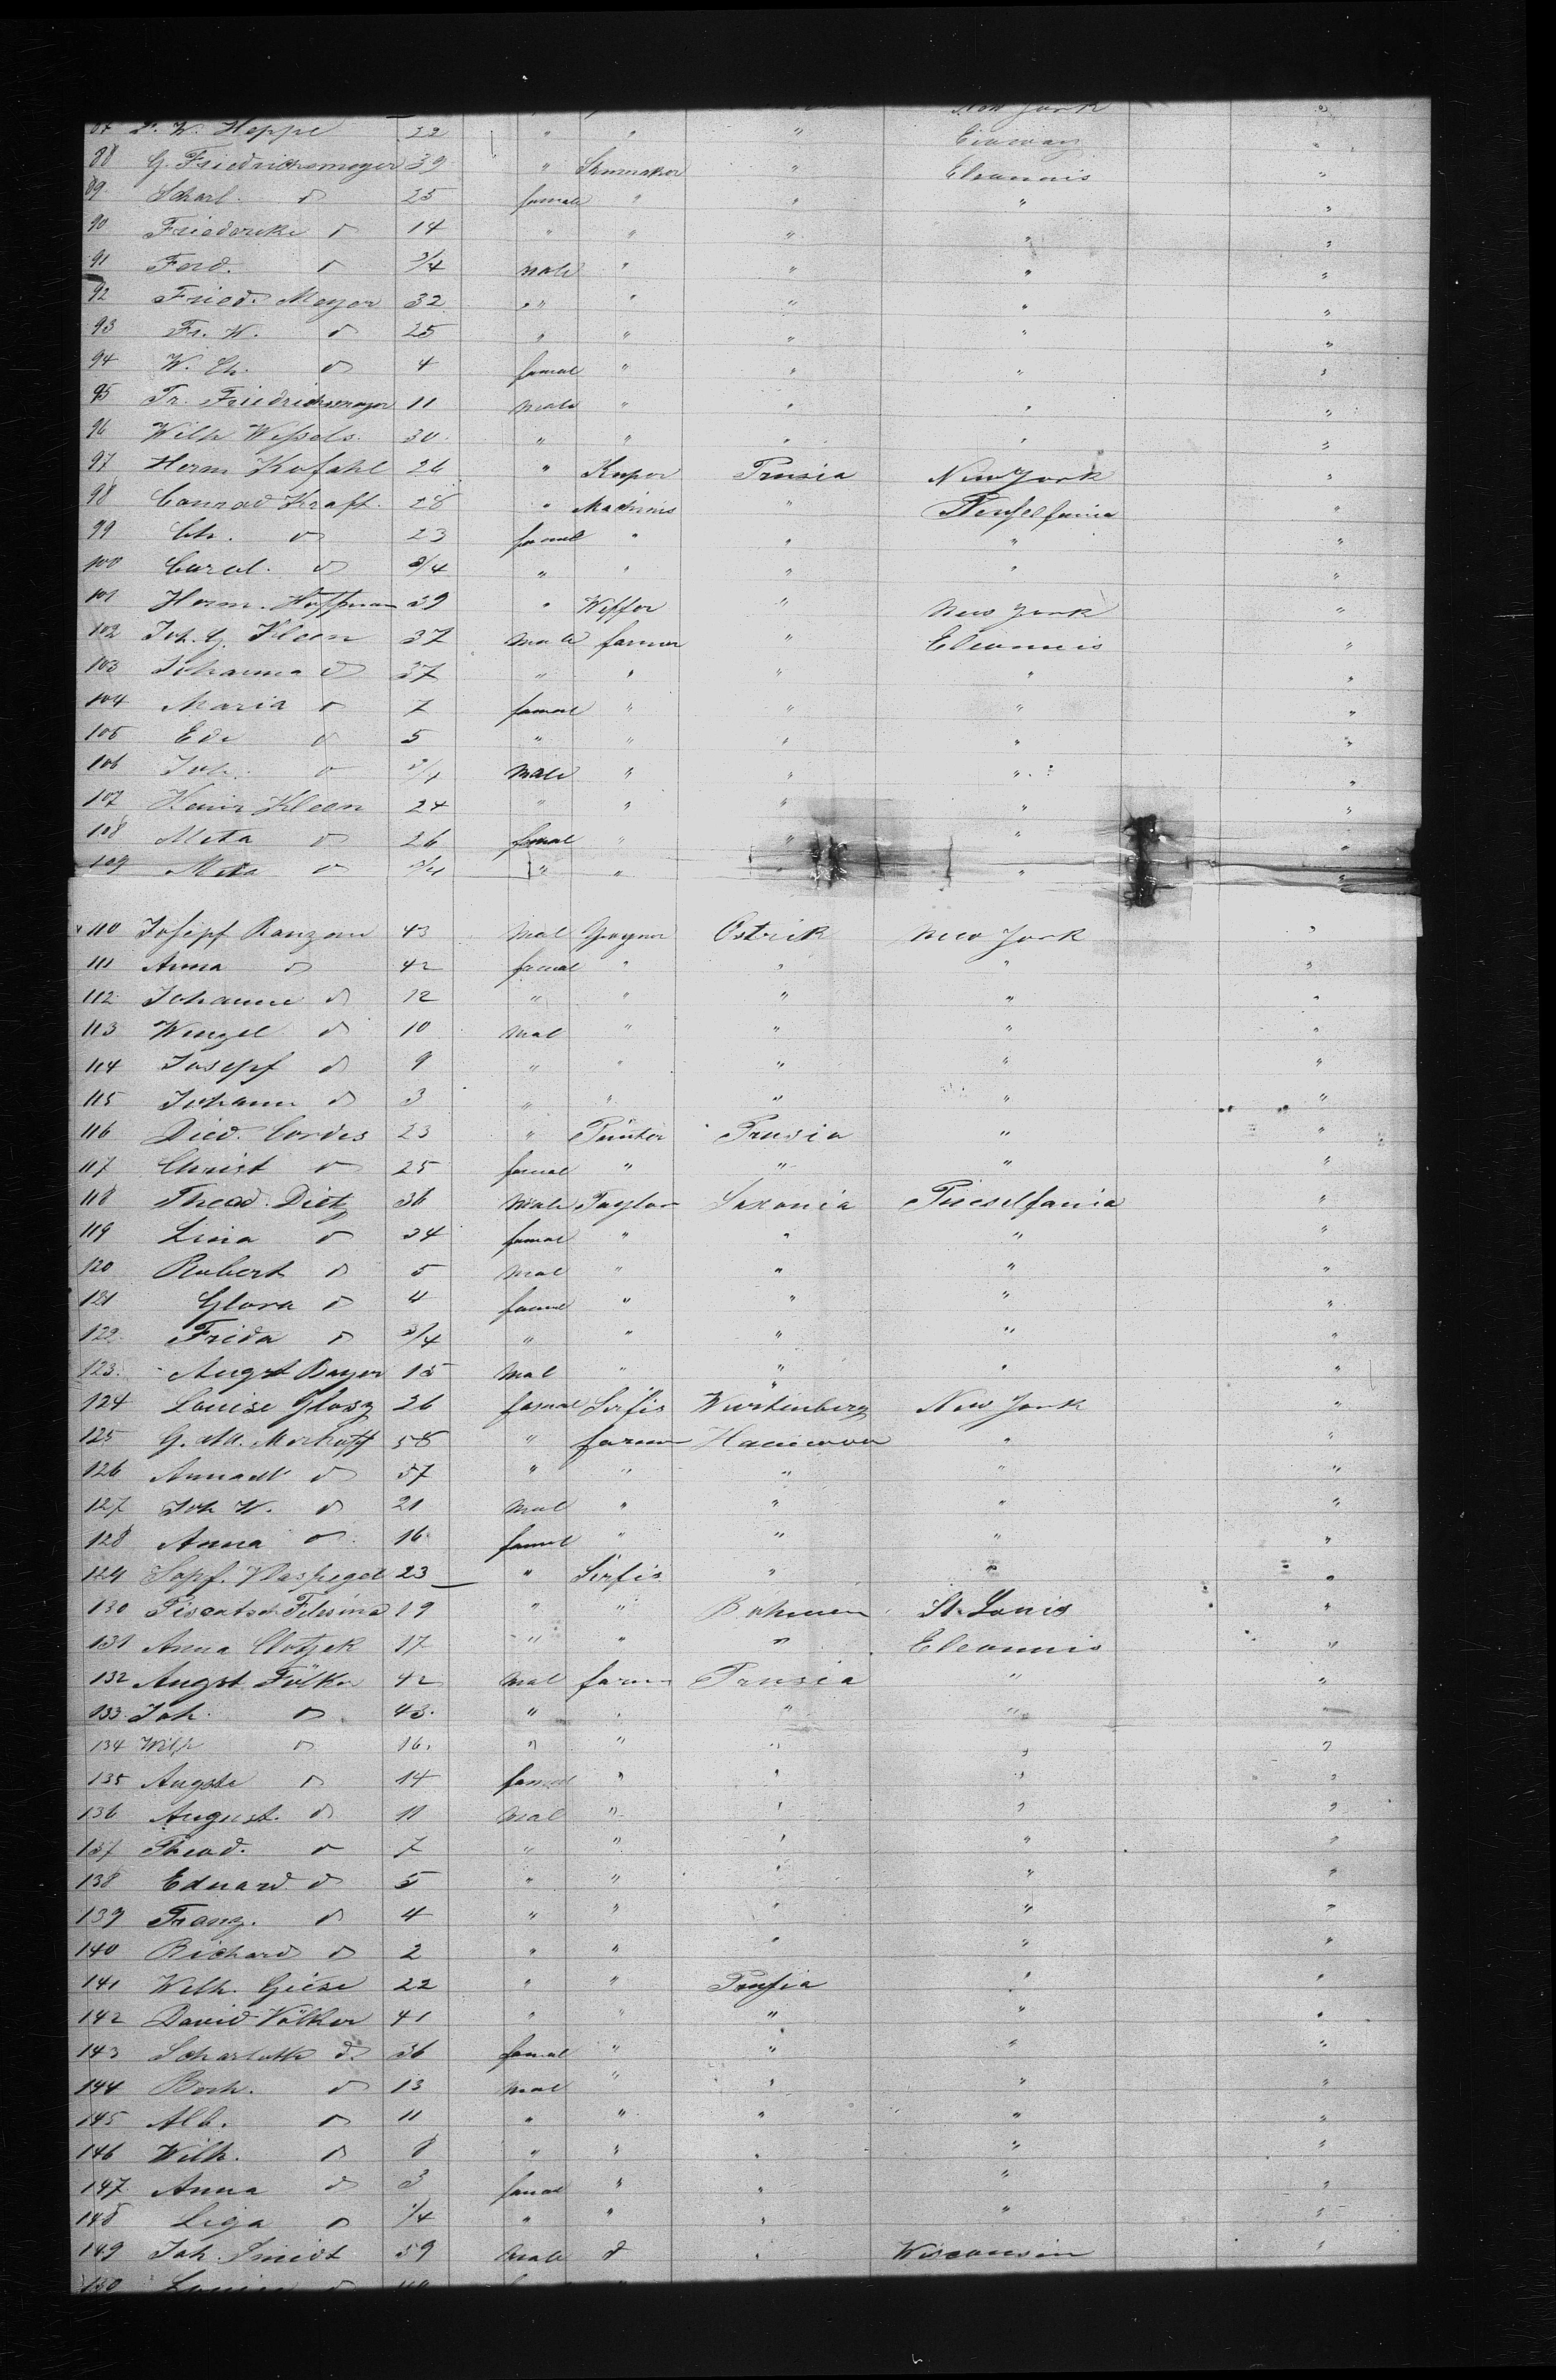 New York "
87 W. Heppe 22 " " " "
88 G. Friedrichsmeyer 39 " Shumaker " Eleannis "
89 Scharl. do 25 female " " " "
90 Friederike do 14 " " " " "
91 Ferd. do 3/4 male " " " "
92 Fried. Meyer 32 " " " " "
93 Fr. W. do 25 " " " " "
94 W. Ch. do 4 femal " " " "
95 Fr. Friedrichsmeyer 11 male " " " "
96 Wilh Weßels 30 " " " " "
97 Herm Kofahl 26 " Kuper Prusia New York "
98 Conrad Kraft 28 " Machinis " "
99 Ch. do 23 femal " " " "
100 Carol. do 3/4 " " " " "
101 Herm. Hoffman 39 " " New York "
102 Joh. G. Kleen 37 male farmer " Eleannis "
103 Johanna do 37 " " " " "
104 Maria do 7 femal " " " "
105 Ede do 5 " " " " "
106 Joh. do 3/4 male " " " "
107 Heinr Kleen 24 " " " " "
108 Meta do 26 femal " " " "
109 Meta do 3/4 " " " "
110 Josepf Ranzom 43 Mal Ostrik New York "
111 Anna do 42 femal " " " "
112 Johanne do 12 " " " " "
113 Wenzel do 10 mal " " " "
114 Josepf do 9 " " " " "
115 Johann do 3 " " " " "
116 Died. Cordes 23 " Pünter Prusia " "
117 Christ do 25 femal " " " "
118 Theod. Dietz 36 Male Taylor Saxonia Pineselfania "
119 Lina do 34 femal " " " "
120 Robert do 5 mal " " " "
121 Glora do 4 femal " " " "
122 Frida do 3/4 " " " " "
123 Augst Bayer 15 mal " " " "
124 Louise Glosz 26 femal Serfis Wurtenberg New York "
125 G. M. 58 " farm Hannover " "
126 do 57 " " " " "
127 Joh W. do 21 mal " " " "
128 Anna do 16 femal " " " "
129 23 " Serfis " " "
130 19 " " Böhmen St. Louis "
131 Anna Clotzek 17 " " " Eleannis "
132 Augst Fölker 42 mal farm Prusia " "
133 Joh do 43 " " " " "
134 Wilh do 16 " " " " "
135 Auguste do 14 femal " " " "
136 August. do 11 mal " " " "
137 Theod. do 7 " " " "
138 Eduard do 5 " " " " "
139 Franz. do 4 " " " " "
140 Richard do 2 " " " " "
141 Wilh. Giese 22 " " Prusia " "
142 David Völker 41 " " " " "
143 Scharlotte do 36 femal " " " "
144 do 13 mal " " " "
145 Alb. do 11 " " " " "
146 Wilh. do 8 " " " " "
147 Anna do 3 femal " " " "
148 Liga do 1/4 " " " " "
149 Joh. Smidt 59 Male do " Wisconsin "
150